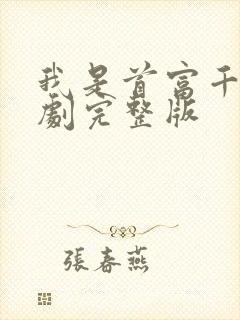 我是首富千
劇完整版
張春燕